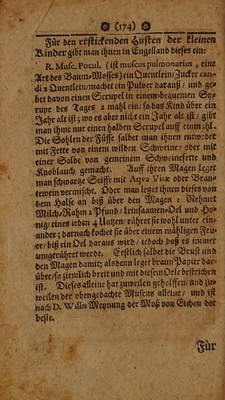 (174)
Für den erstickenden Husten der kleinen
Kinder gibt man ihnen in Engelland dieses ein:
R. Musc. Pocul. (ist muscus pulmonarius, eine
Art des Baum-Mosses) ein Quentlein / Zucker candi
2 Quentlein / machet ein Pulver daraus / und gebet
davon einen Scrupel in einem bequemen Syrupe
des Tages 2 mahl ein / so das Kind über ein
Jahr alt ist; wo es aber nicht ein Jahr alt ist / gibt
man ihme nur einen halben Scrupel auff einmahl.
Die Sohlen der Füsse salbet man ihnen entweder
mit Fette von einem wilden Schweine / oder mit
einer Salbe von gemeinem Schweinsfette und
Knoblauch gemacht. Auff ihren Magen leget
man schwartze Seiffe mit Aqva Vitæ oder Brantewein
vermischt. Oder man leget ihnen dieses von
dem Halse an biß über den Magen: Nehmet
Milch-Rahm 2 Pfund / Leinsaamen-Oel und Honig /
eines ieden 4 Untzen: rühret sie wohl unter einander;
darnach kochet sie über einem mähligen Feuer /
biß ein Oel daraus wird / iedoch daß es immer
umgerühret werde. Erstlich salbet die Brust und
den Magen damit; alsdenn leget braun Papier darüber /
so ziemlich breit und mit diesem Oele bestrichen
ist. Dieses alleine hat zuweilen geholffen / und zuweilen
der obengedachte Muscus alleine / und ist
nach D. Willis Meynung der Moß von Eichen der
beste.
Für